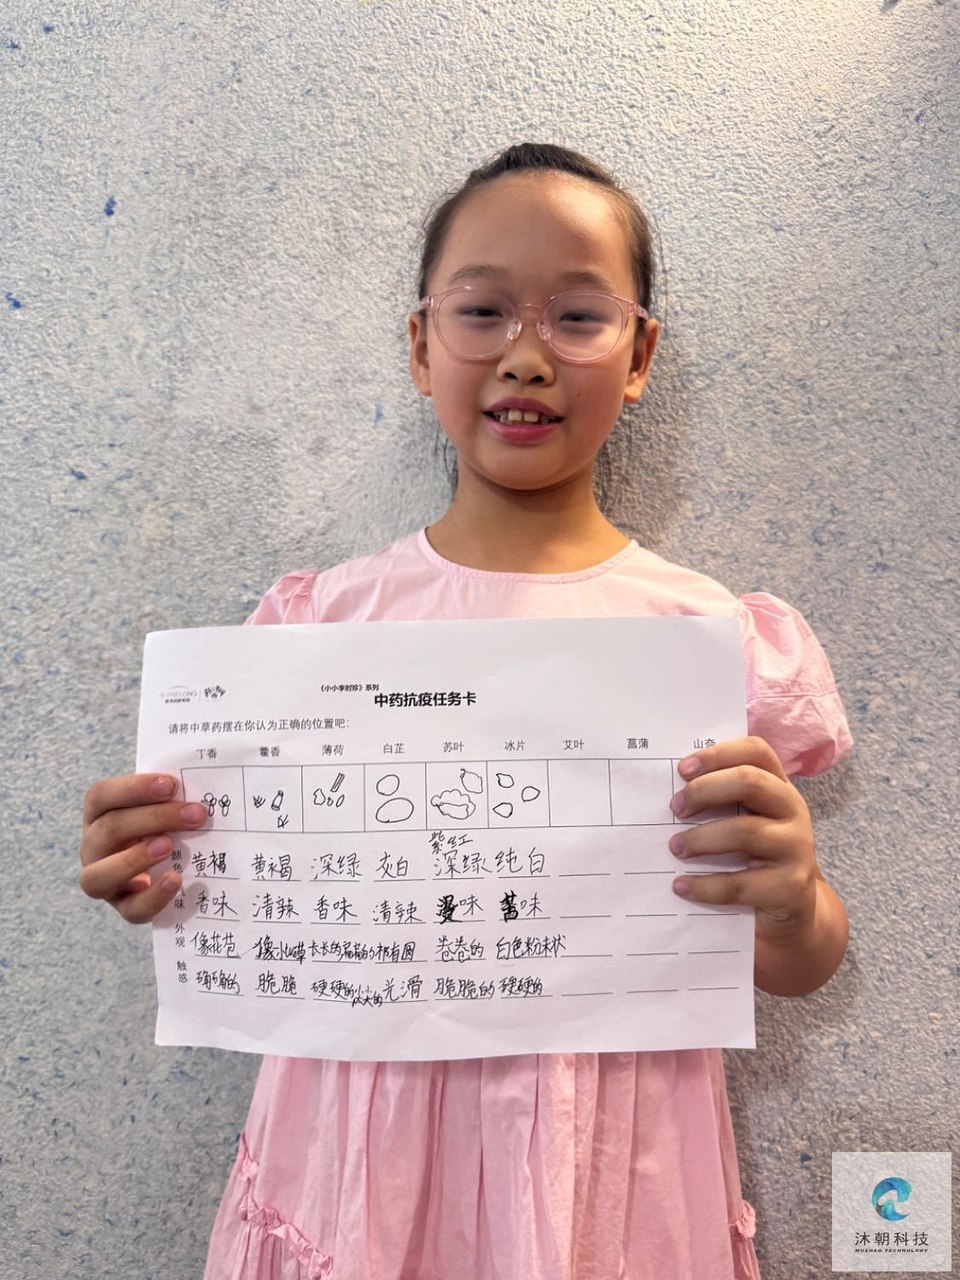 SHYNELONG
《小小李时珍》系列
中药抗疫任务卡
请将中草药摆在你认为正确的位置吧:
丁香 藿香 薄荷 白芷 苏叶 冰片 艾叶 菖蒲 山奈
紫红
颜色 黄褐 黄褐 深绿 灰白 深绿 纯白
味 香味 清辣 香味 清辣 味 苦味
外观 像花苞 像小山草 长长的扁扁的 椭圆 卷卷的 白色粉末状
触感 硬硬的 脆脆 硬硬的尖尖的 光滑 脆脆的 硬硬的
沐朝科技
MUZHAO TECHNOLOGY